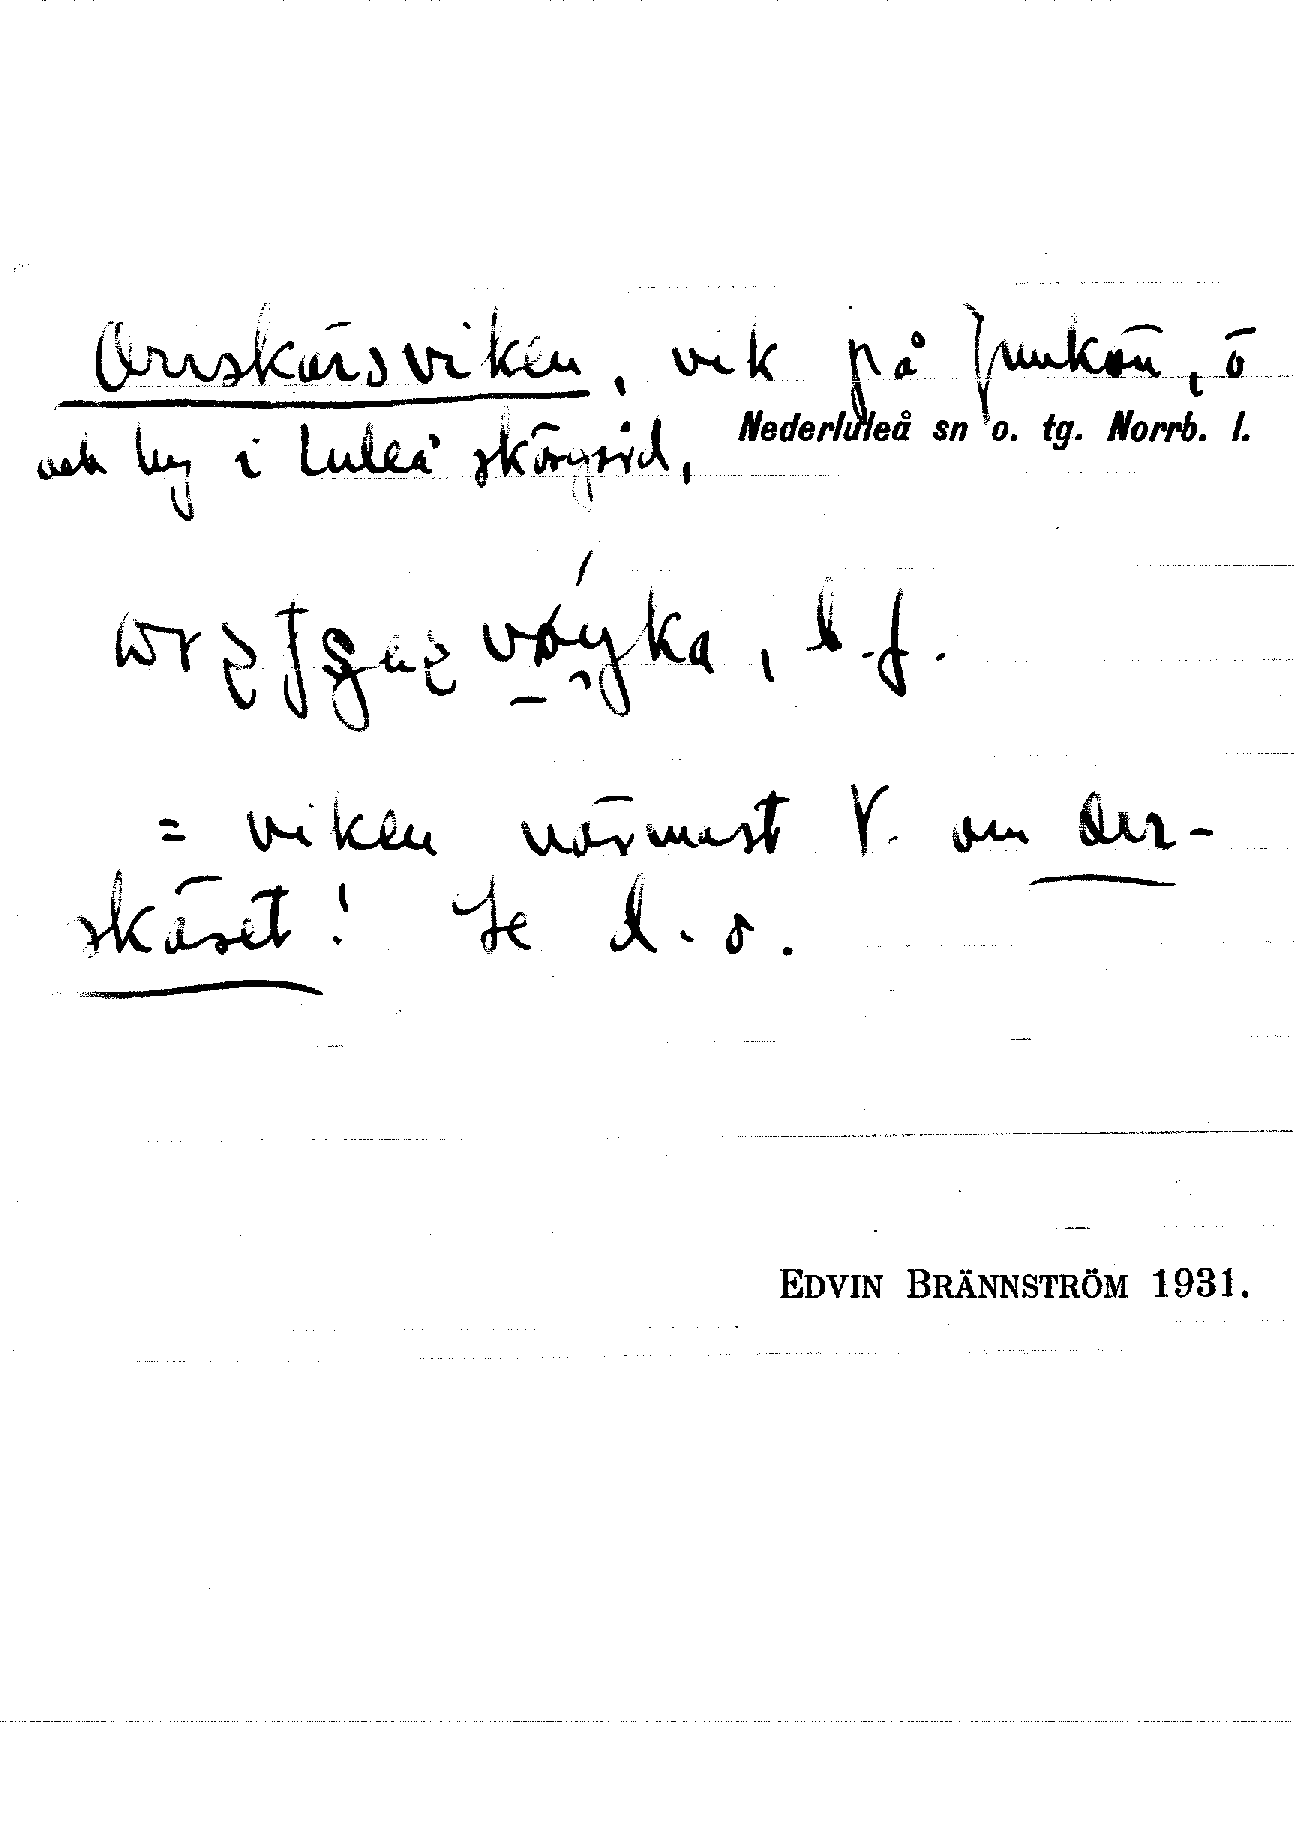 Orrskärsviken, vik på Junkön, ö
Nederluleå sn o. tg. Norrb. l.
och by i Luleå skärgård,
b. f.
= viken närmast V. om Orr-
skäret! Se d. o.
EDVIN BRÄNNSTRÖM 1931.